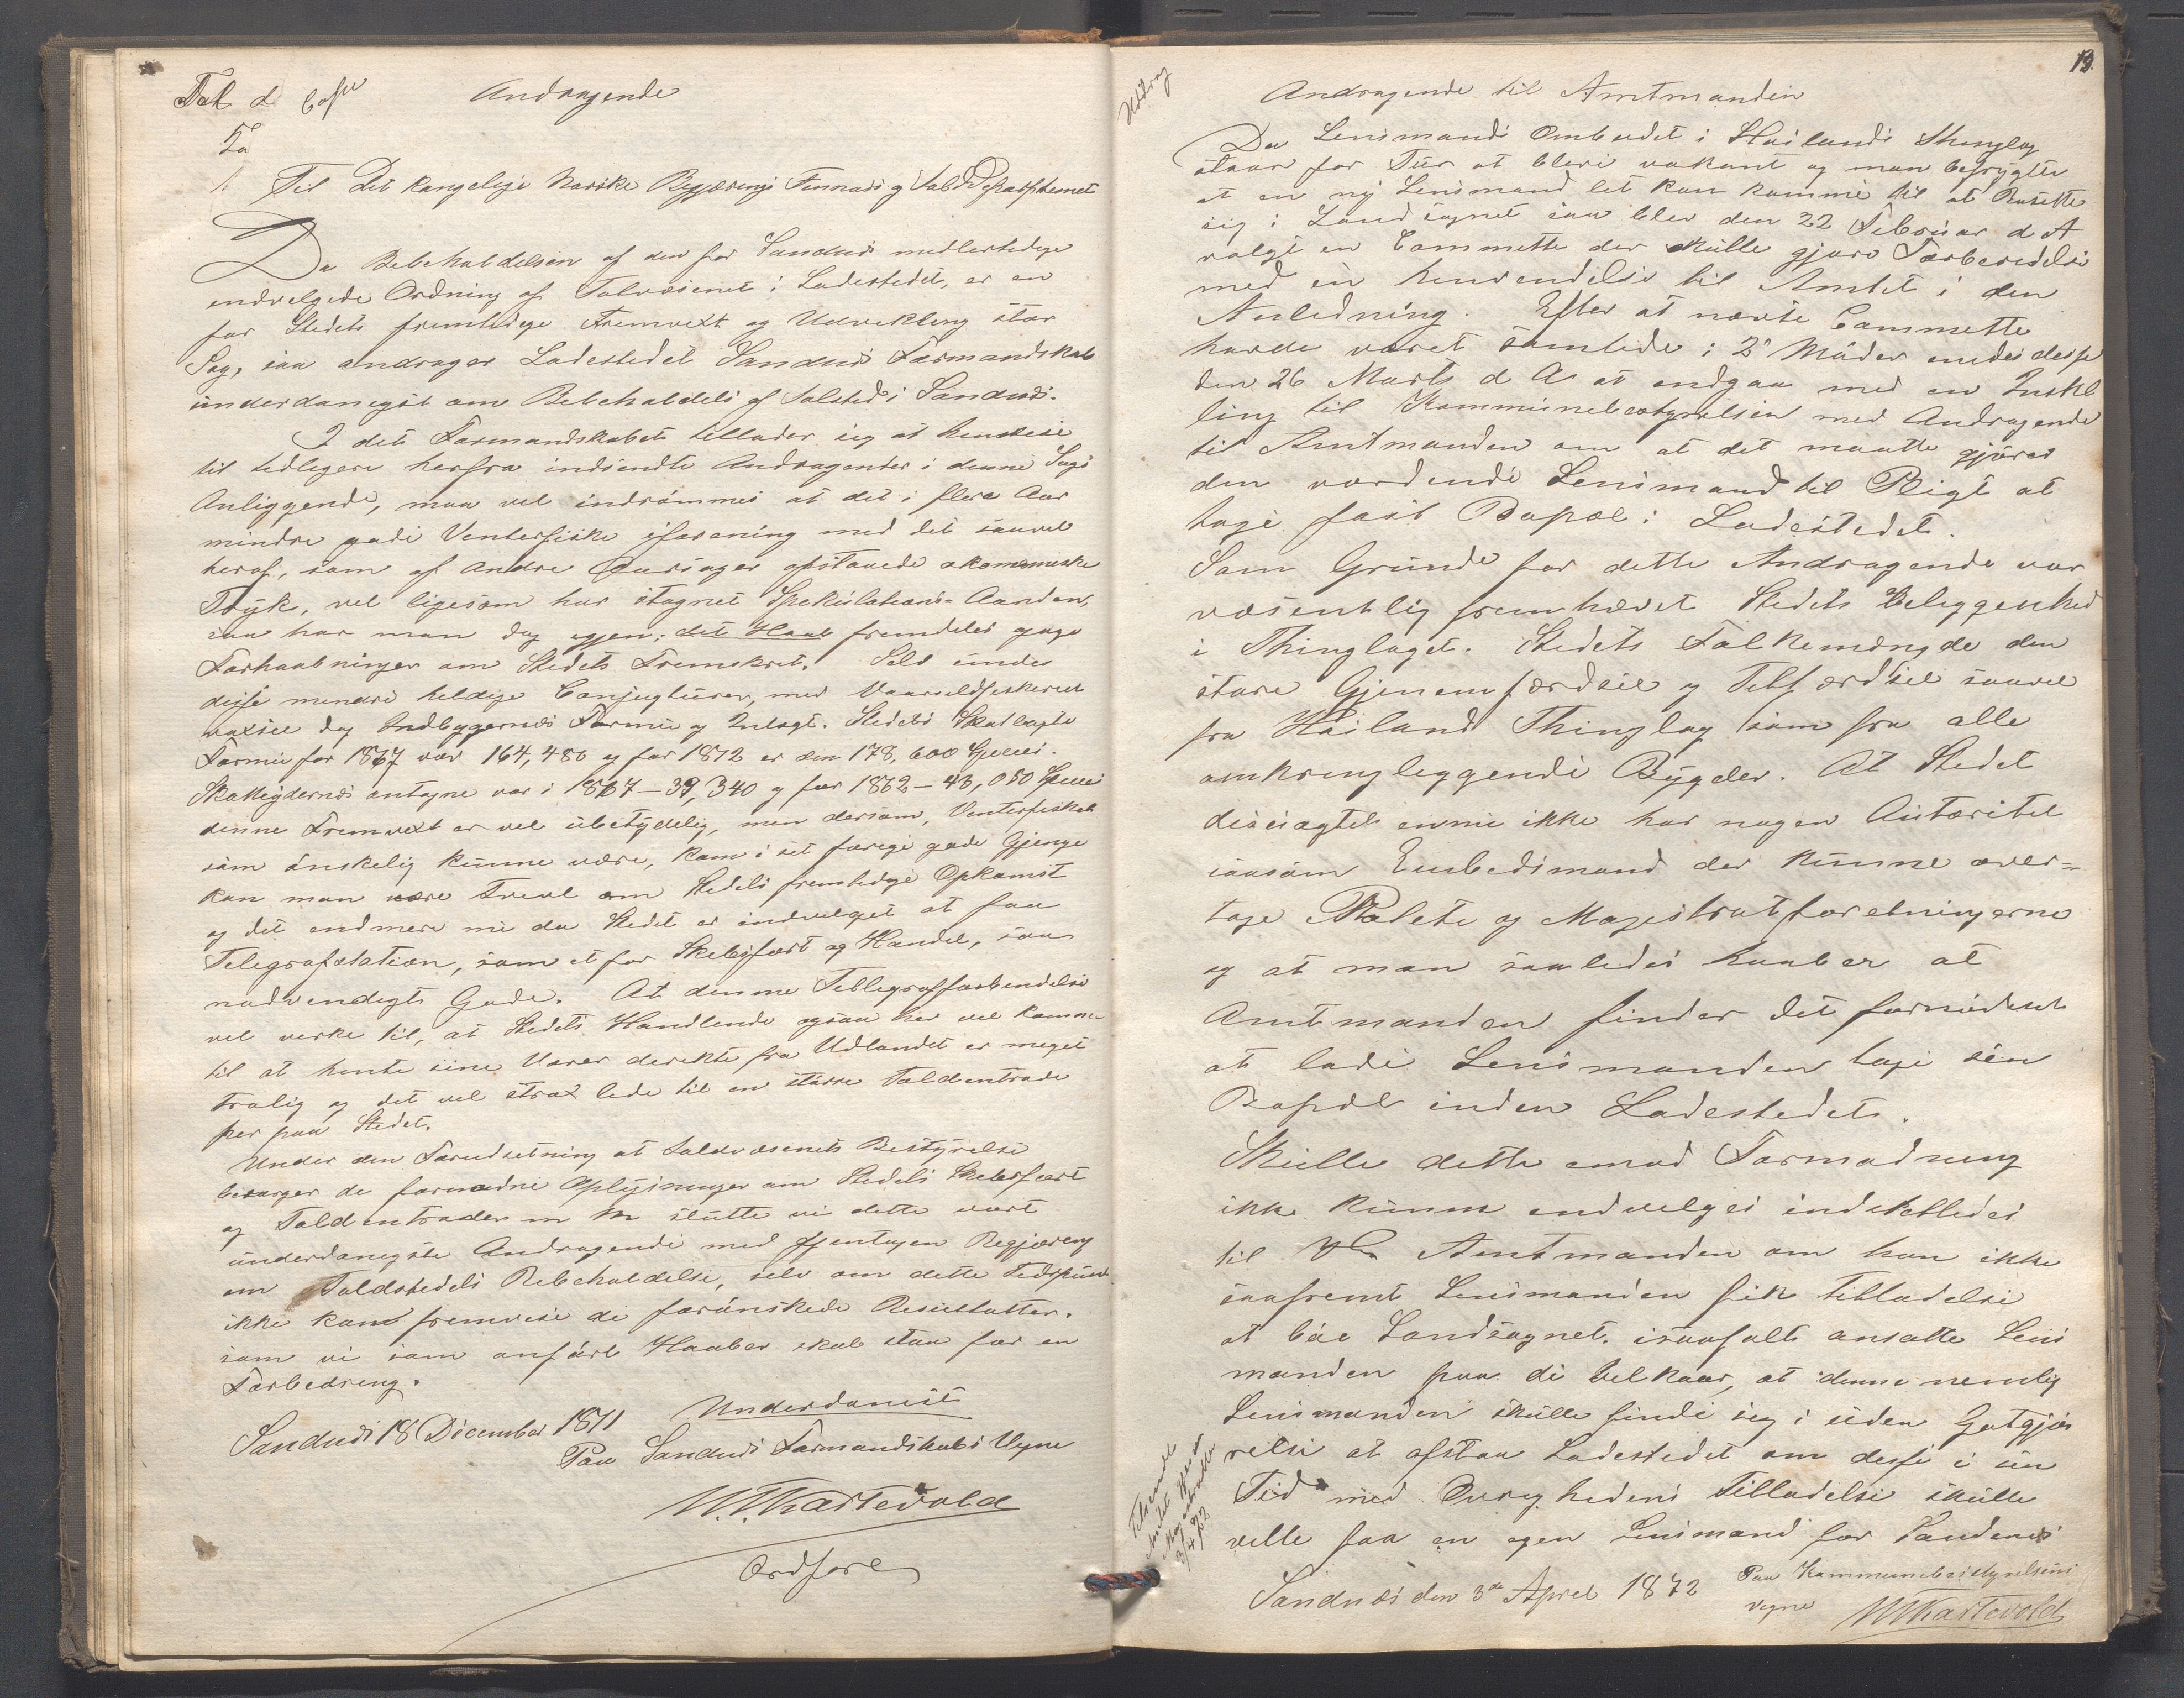 Tol d Copi Andragende
Til Det kongelige Norske Regjærings Finnans og Told Departement
Da Bebeholdelsen af den for Sandnes midlertidige
indvelgede Ordning af Tolvæsenet i Ladestedet, er en
for Stedets fremtidige Fremvext og Udvikling stor
Sag, saa andrager Ladestedet Sandnes Formandskab
underdanigst om Bebeholdels af Tolsted i Sandnes.
I det Formandskabet tillader sig at henvise
til tidligere herfra indsendte Andragender i denne Sags
Anliggende, maa vel indrømmes at det i flere Aar
mindre gode Venterfiske iforening med det saavel
heraf, som af andre Aarsager opstaaede økonomiske
Tryk, vel ligesom har stagnet Spekulations-Aanden,
saa har man dog igjen det Haab fremdeles gode
Forhaabninger om Stedets Fremskret. Selv under
disse mindre heldige Conjugturer, med Vaarsildfiskeriet
voxsee dog Indbyggernes Formue og Indtægt. Stedets Skatlagte
Formue for 1867 var 164,480 og for 1872 er den 178,600 Species.
Skatteydernes antagne var i 1867 - 39,340 og for 1862 - 43,050 Species
denne Fremvext er vel ubetydelig, men dersom, Venterfisket
som ønskelig kunne være, kom i sit forige gode Gjenge
kan man være Trivl om Stedets fremtidige Opkomst
og det endmere nu da Stedet er indvelget at faa
Telegrafstation, som et for Skibsfart og Handel, saa
nødvendigt Gode. At denne Tellegrafforbendelse
vel verke til, at Stedets Handlende ogsaa her vel komme
til at hente sine Varer derekte fra Udlandet er meget
trolig og det vel strax lede til en større Toldentrade
her paa Stedet.
Under den Forudsetning at Toldvæsenets Bestyrelse
besørger de fornødne Oplysninger om Stedets Skibsfart
og Toldentrader m m slutte vi dette vort
underdanigste Andragende med gjentagen Begjæreng
om Toldstedets Bebeholdelse, selv om dette Tidspunkt
ikke kan fremvise de forønskede Resultatter.
som vi som anført Haaber skal staa for en
Forbedreng.
Underdanist
Sandnes 18 December 1871
Paa Sandnes Formandskabs Vegne
Ordfører
Uddrag
Andragende til Amtmanden
Da Lensmands Ombudet i Høilands Thinglag
staar for Tur at blive vakant og man befrygter
at en ny Lensmand let kan komme til at Bosette
sig i Landsognet saa blev den 22 Februar d A
valgt en Committe der skulle gjøre Forberedelse
med en henvendelse til Amtet i den
Anledning. Efter at nævte Committe
havde været samlede i 2 Møder enedes desse
den 26 Marts d A at indgaa med en Instil
ling til Kommunebestyrelsen med Andragende
til Amtmanden om at det maatte gjøres
den vordende Lensmand til Pligt at
tage fast Bopæl i Ladestedet.
Som Grunde for dette Andragende var
væsentlig fremhævet Stedets Beleggenhed
i Thinglaget. Stedets Folkemængde den
store Gjenemfærdsel og Tilfærdsel saavel
fra Høiland Thinglag som fra alle
omkringleggende Bygder. At Stedet
desuagtet ennu ikke har nogen Autoritet
saasom Embedsmand der kunne over=
tage Politi og Magistratforetningerne
og at man saaledes haaber at
Amtmanden finder det fornødent
at lade Lensmanden tage sin
Bopæl inden Ladestedet.
Skulle dette emod Formodning
ikke kunne endvelges indstelledes
til Amtmanden om han ikke
saafremt Lensmanden fik Tilladelse
at boe Landsognet. isaafalt ansatte Lens
manden paa de velkaar, at denne nemlig
Lensmanden skulle finde sig i uden Gotgjø
relse at afstaa Ladestedet om desse i sin
Tid med Øvrighedens Tilladelse skulle
ville faa en egen Lensmand for Sandnes
Sandnes den 3de April 1872
Paa Kommunebestyrelsens
Vegne